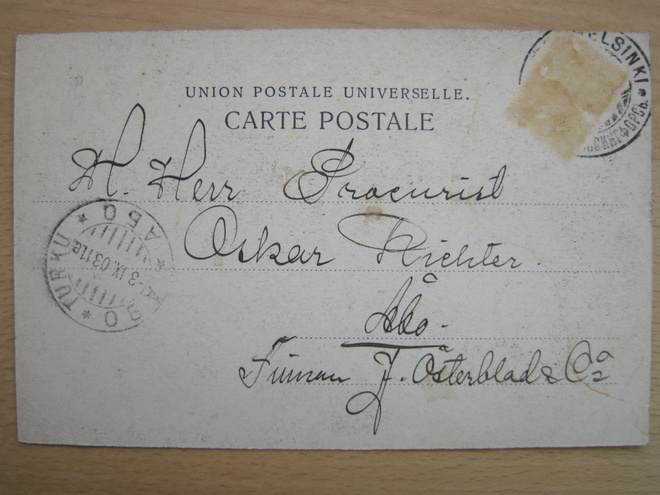 UNION POSTALE UNIVERSELLE.
CARTE POSTALE
HELSINKI
H. Herr Procurist
Oskar Richter.
Åbo.
Firman J. Österblad & Co
TURKU * ÅBO *
3.IX.03 11e